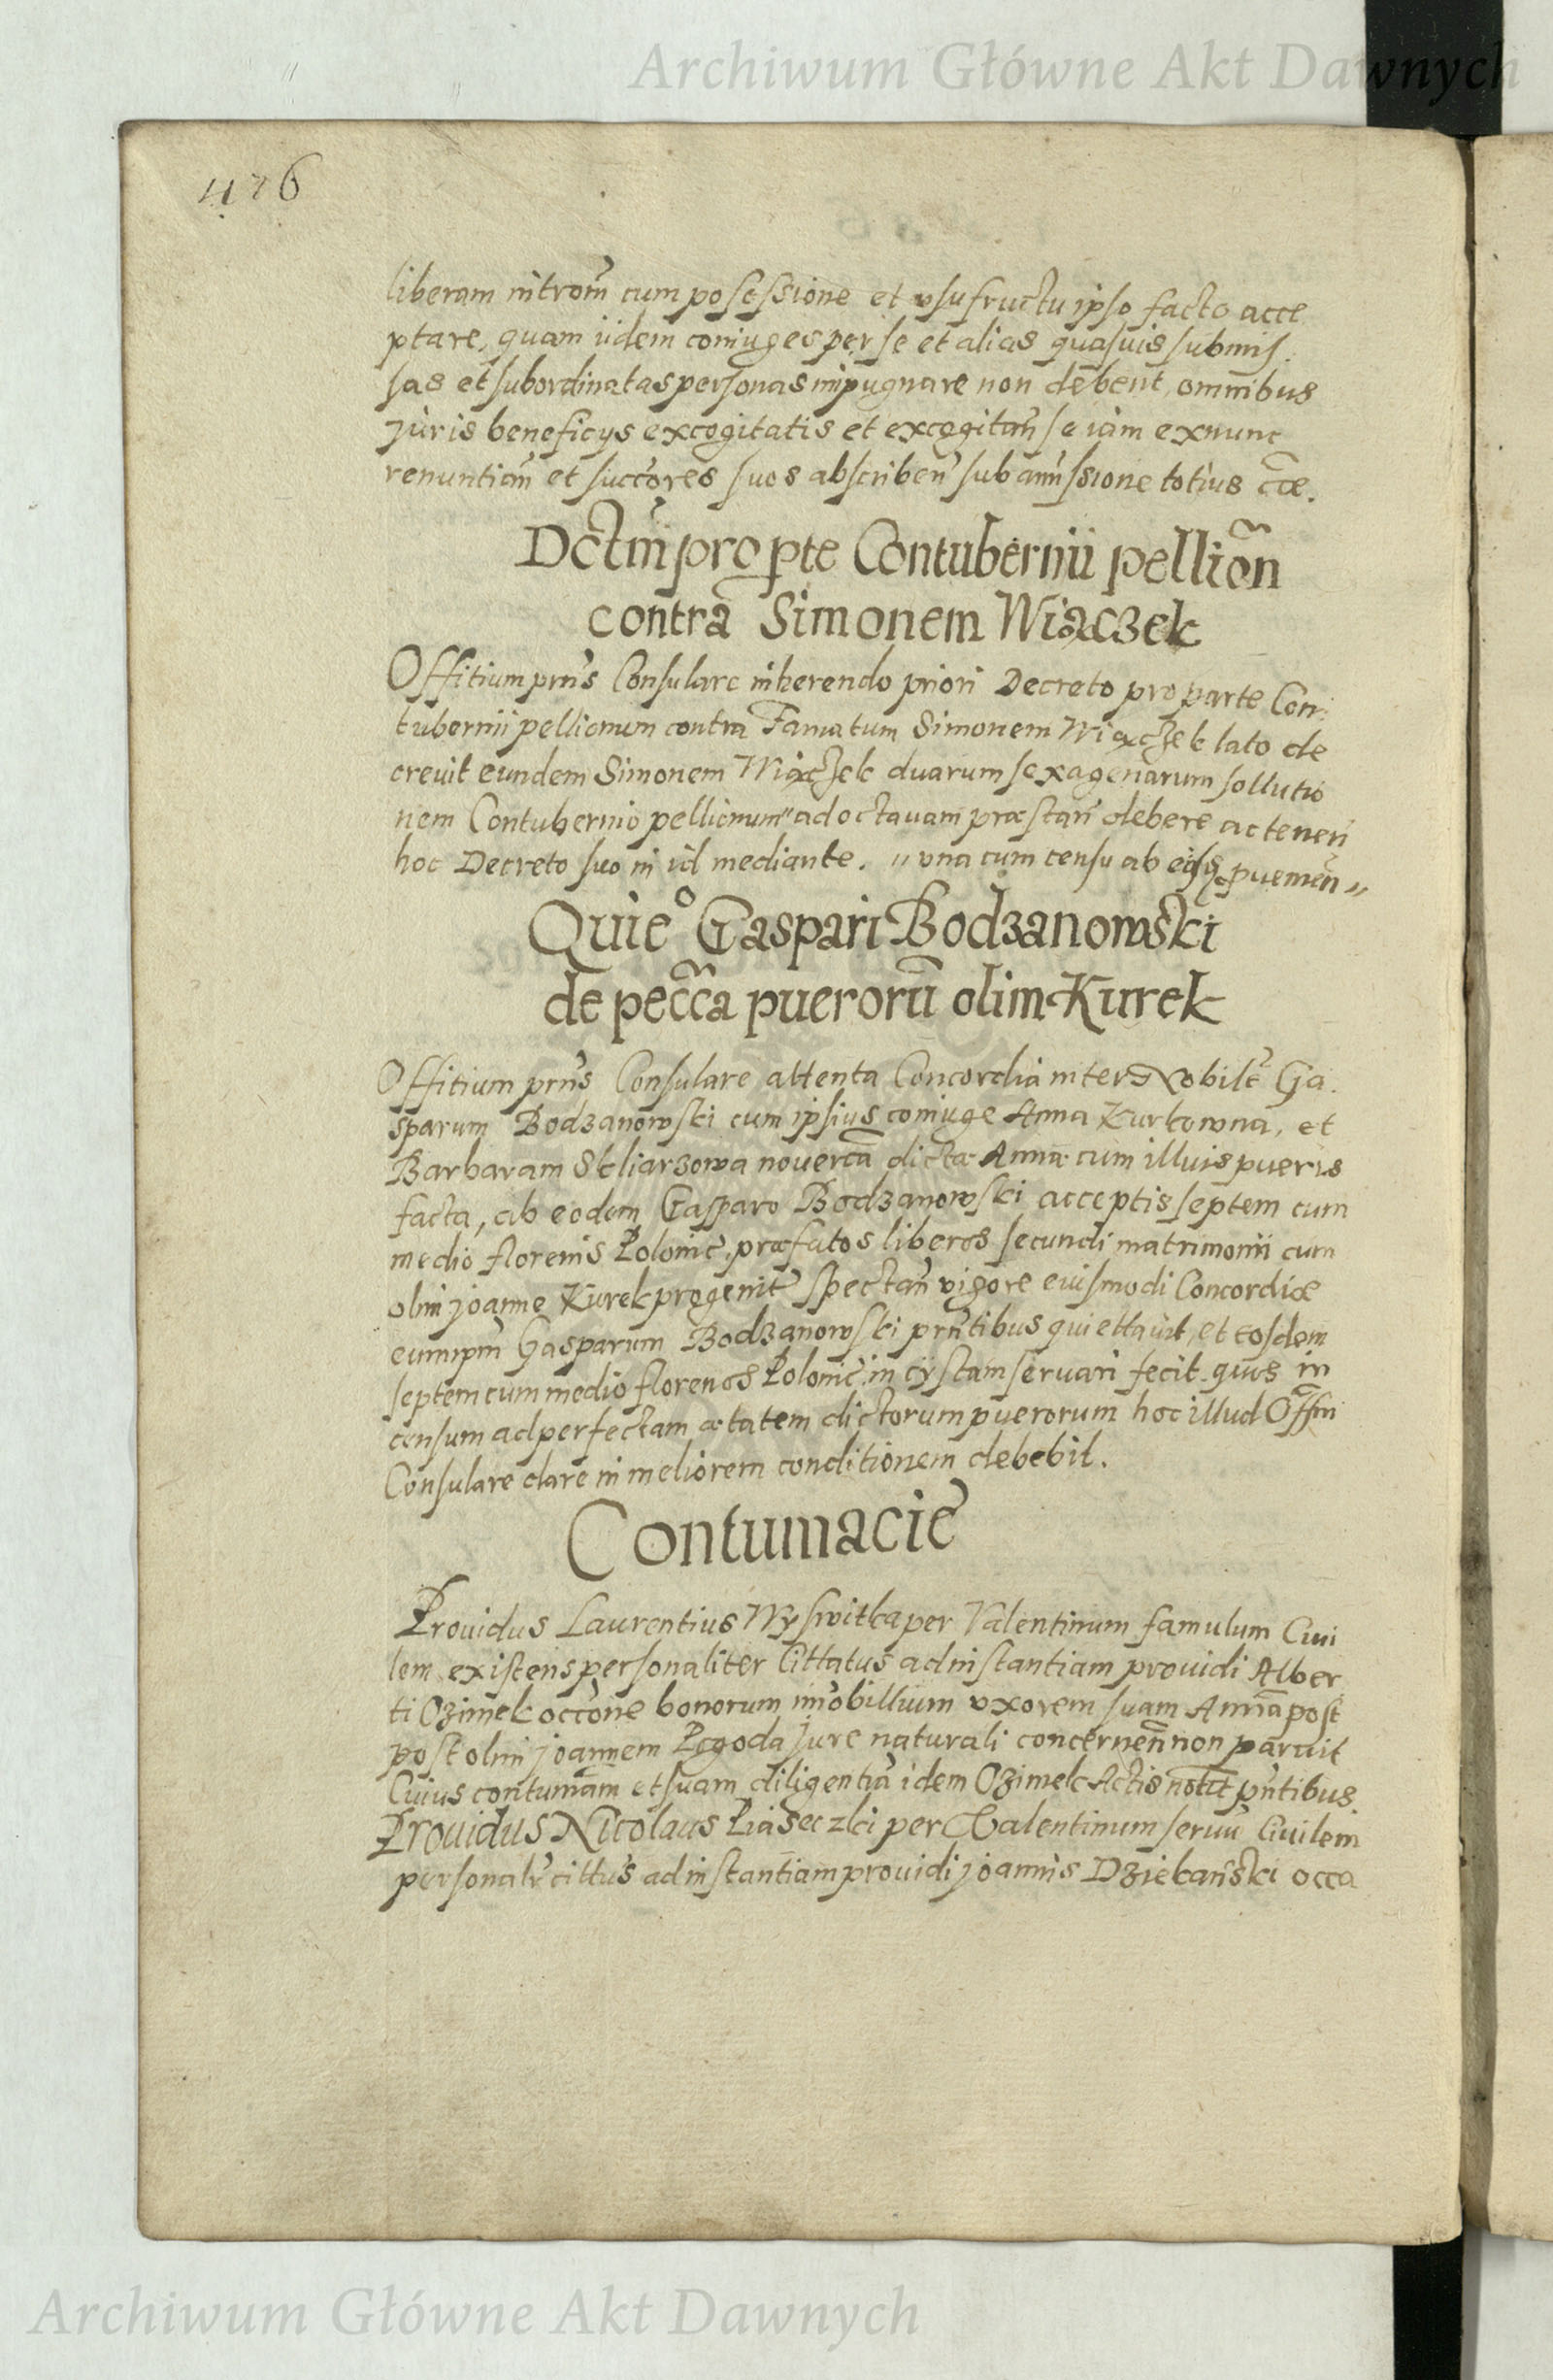 Archiwum Główne Akt Dawnych
476
liberam introm̃ cum possessione et vsufructu ipso facto acce
ptare, quam iidem coniuges per se et alias quasuis submis.
sas et subordinatas personas impugnare non debent, omnibus
juris beneficys excogitatis et excogitañ se iam exnunc
renuntiañ et succores suos abscribeñ sub amissione totius cãe.
Dctm̃ pro pte Contubernii pellioñ
contra Simonem Wiączek
Offitium prñs Consulare inherendo priori Decreto pro parte Con:
tubernii pellionum contra Famatum Simonem Wiączek lato de
creuit eundem Simonem Wiączek duarum sexagenarum sollutio
nem Contubernio pellionum" ad octauam præstari debere ac teneri
hoc Decreto suo in id mediante. " vna cum censu ab eisdẽ puenieñ "
Quieᵒ Gaspari Bodzanowski
de peccã puerorũ olim Kurek
Offitium prñs Consulare attenta Concordia inter Nobilẽ Ga.
sparum Bodzanowski cum ipsius coniuge Anna Kurkowna, et
Barbaram Skliarzowa nouercã dictæ Annæ cum illius pueris
facta, ab eodem Gasparo Bodzanowski acceptis septem cum
medio florenis Polonic̃, præfatos liberos secundi matrimonii cum
olim joanne Kurek progenit̃ spectañ vigore euismodi Concordiæ
eumipm̃ Gasparum Bodzanowski prñtibus quiettauit, et eosdem
septem cum medio florenos Polonic̃, in cystam seruari fecit. quos in
censum ad perfectam ætatem dictorum puerorum hoc illud Offm̃
Consulare dare in meliorem conditionem debebit.
Contumacie
Prouidus Laurentius Wyswitka per Valentinum famulum Ciui
lem existens personaliter Cittatus ad instantiam prouidi Alber
ti Ozimek occone bonorum im̃obillium vxorem suam Annã post
post olim joannem Pogoda Jure naturali concerneñ non paruit
Cuius contumãm et suam diligentiã idem Ozimek Actis notit pñtibus.
Prouidus Nicolaus Piaseczki per Valentinum seruũ Ciuilem
personalr̃ cittus ad instantiam prouidi joannis Dziekański occa
Archiwum Główne Akt Dawnych